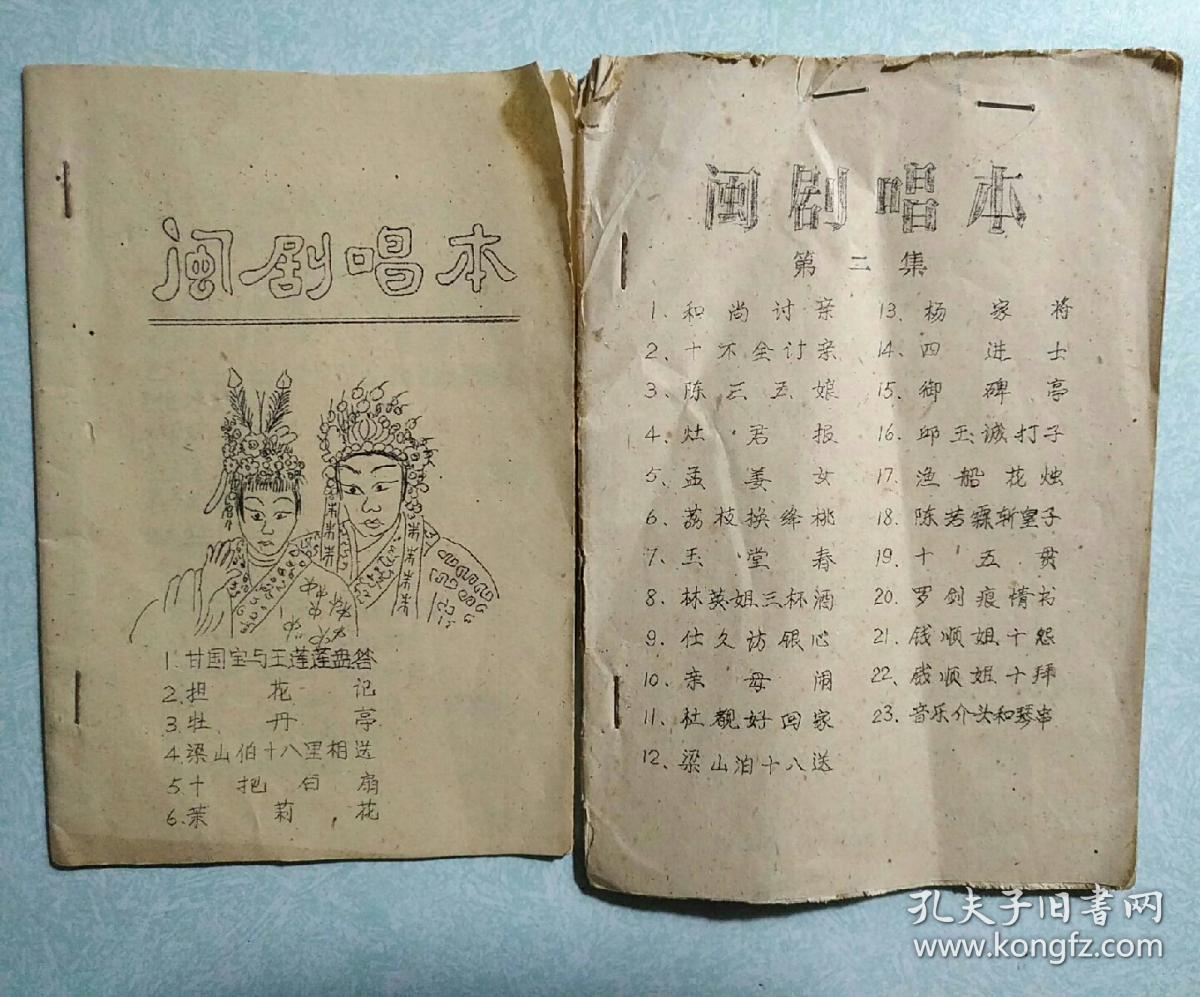 闽剧唱本
1.甘国宝与王莲莲盘答
2.担花记
3.牡丹亭
4.梁山伯十八里相送
5.十把白扇
6.茉莉花
闽剧唱本
第二集
1、和尚讨亲
2、十不全讨亲
3、陈三五娘
4、灶君报
5、孟姜女
6、荔枝换绛桃
7、玉堂春
8、林英姐三杯酒
9、仕久访银心
10、亲母闹
11、杜靓好回家
12、梁山泊十八送
13、杨家将
14、四进士
15、御碑亭
16、邱玉诚打子
17、渔船花烛
18、陈若霖斩皇子
19、十五贯
20、罗剑痕情书
21、钱顺姐十怨
22、钱顺姐十拜
23、音乐介头和琴串
孔夫子旧书网
www.kongfz.com